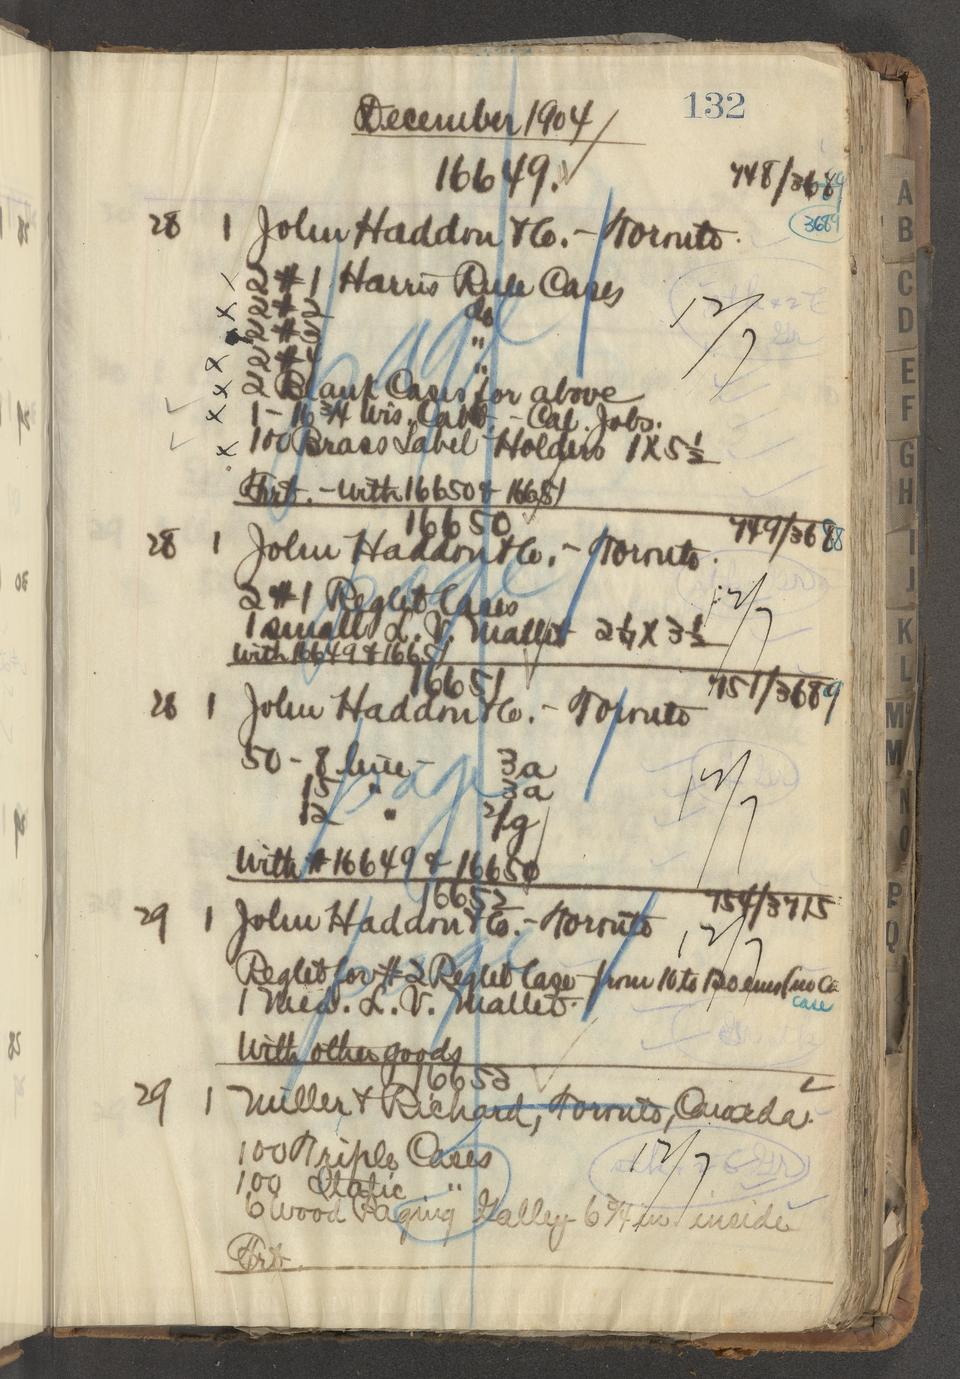 132
December 1904
16649.
748/3689
3689
28 1 John Haddon & Co. - Toronto.
2 #1 Harris Rule Cases
2 #2 do
2 #3 "
2 #4 "
2 Blank Cases for above
1 - 16 3/4 Wis. Cab. - Cal. Jobs.
100 Brass Label Holders 1 X 5 1/2
12/7
Frt. - With 16650 & 16651
16650
749/3688
28 1 John Haddon & Co. - Toronto.
2 #1 Reglet Cases
1 small L. V. Mallet 2 1/4 X 3 1/2
12/7
With 16649 & 16651
16651
751/3689
28 1 John Haddon & Co. - Toronto
50 - 8 line - 3a
15 " 3a
12 " 2/g
12/7
With #16649 & 16650
16652
754/3715
29 1 John Haddon & Co. - Toronto
12/7
Reglet for #2 Reglet Case from 10 to 120 ems (no Ca
case
1 Med. L. V. Mallet.
With other goods
16653
29 1 Miller & Richard, Toronto, Canada.
100 Triple Cases
100 Italic "
12/7
6 Wood Paging Galley 6 3/4 in inside
Frt.
A
B
C
D
E
F
G
H
I
J
K
L
M
M
N
O
P
Q